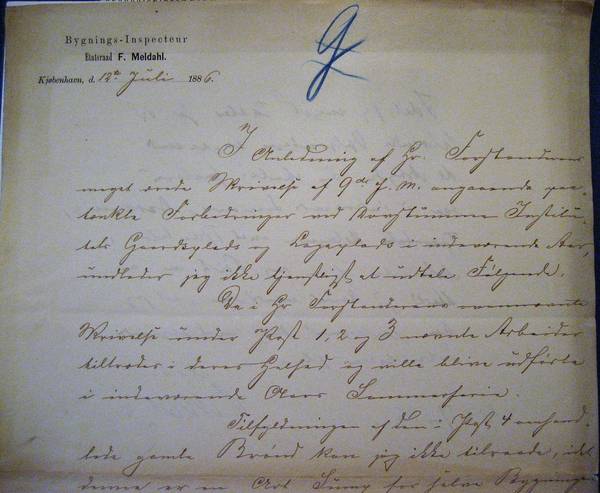 Bygnings-Inspecteur
Etatsraad F. Meldahl.
Kjøbenhavn, d. 12te Juli 1886.
I Anledning af Hr. Forstanderens
meget ærede Skrivelse af 9de d. M. angaaende paa-
tænkte Forbedringer ved Døvstumme Institu-
tets Gaardsplads og Legeplads i indeværende Aar,
undlader jeg ikke tjenstligst at udtale Følgende.
De i Hr Forstanderens ovennævnte
Skrivelse under Post 1, 2 og 3 nævnte Arbeider
tiltrædes i deres Helhed og ville blive udførte
i indeværende Aars Sommerferie.
Tilfyldningen af den i Post 4 omhand-
lede gamle Brønd kan jeg ikke tilraade, idet
denne er en Art Sump for selve Bygningen